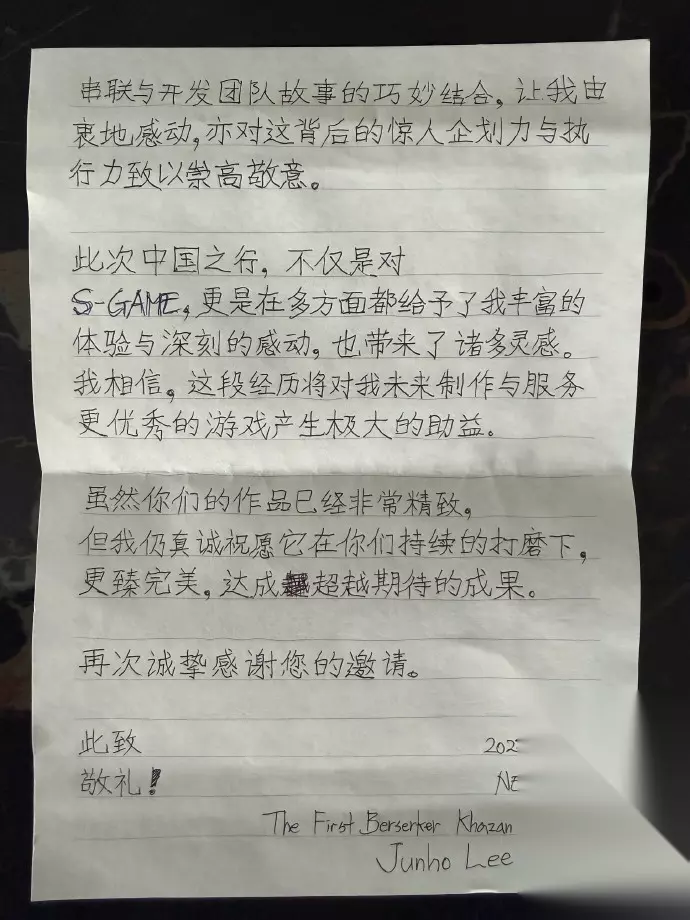 串联与开发团队故事的巧妙结合，让我由
衷地感动，亦对这背后的惊人企划力与执
行力致以崇高敬意。
此次中国之行，不仅是对
S-GAME，更是在多方面都给予了我丰富的
体验与深刻的感动，也带来了诸多灵感。
我相信，这段经历将对我未来制作与服务
更优秀的游戏产生极大的助益。
虽然你们的作品已经非常精致，
但我仍真诚祝愿它在你们持续的打磨下，
更臻完美，达成超越期待的成果。
再次诚挚感谢您的邀请。
此致 202
敬礼！ NE
The First Berserker Khazan
Junho Lee